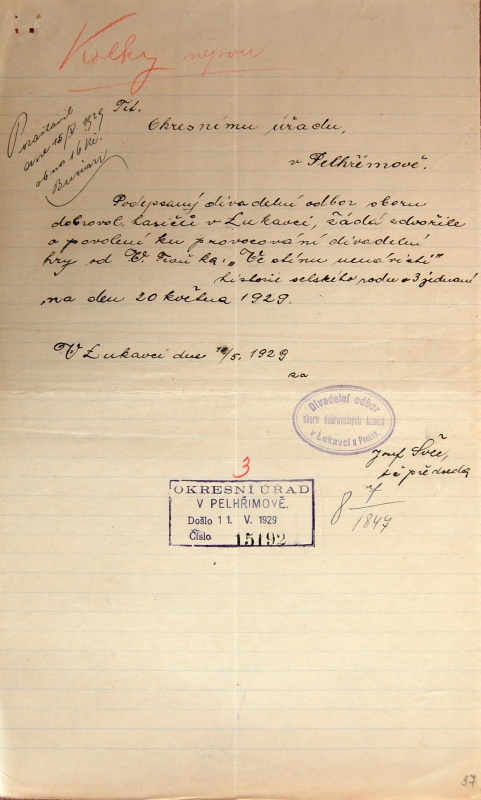 Kolky
Tit.
Okresnímu úřadu,
v Pelhřimově.
dne 15/V. 1929
16 Kč.
Podepsaný divadelní odbor sboru
dobrovol. hasičů v Lukavci, žádá zdvořile
o povolení ku provozování divadelní
hry od V. „Ve stínu nenávisti"
historie selského rodu o 3 jednání
na den 20 května 1929.
V Lukavci dne 10/5. 1929
za
Divadelní odbor
sboru dobrovolných hasičů
v Lukavci u Pacova.
Josef
předseda
3
OKRESNÍ ÚŘAD
V PELHŘIMOVĚ.
Došlo 11. V. 1929
Číslo 15192
8 7
1847
57